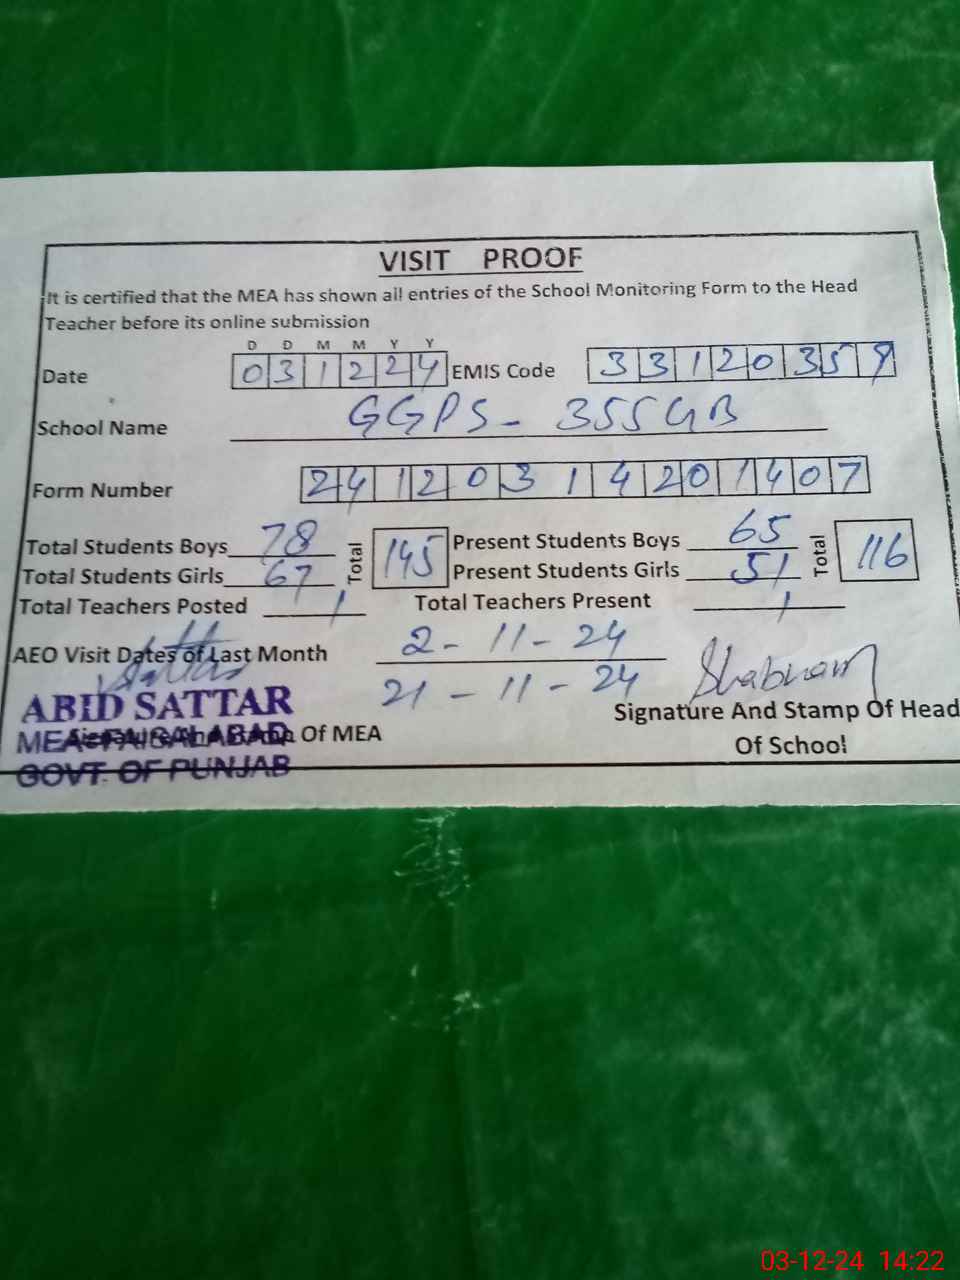 VISIT PROOF
It is certified that the MEA has shown all entries of the School Monitoring Form to the Head
Teacher before its online submission
D D M M Y Y
Date 031224 EMIS Code 33120359
School Name GGPS - 355GB
Form Number 24120314201407
Total Students Boys 78 Total 145 Present Students Boys 65 Total 116
Total Students Girls 67 Present Students Girls 51
Total Teachers Posted 1 Total Teachers Present 1
AEO Visit Dates of Last Month 2-11-24
21-11-24
Shabnam
ABID SATTAR
MEA-FAISALABAD
Of MEA
GOVT. OF PUNJAB
Signature And Stamp Of Head
Of School
03-12-24 14:22